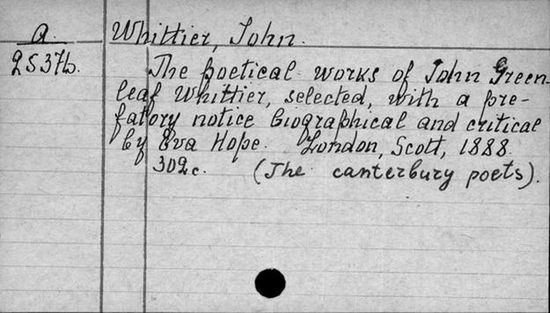 a. Whittier, John.
2537b. The poetical works of John Green-
leaf Whittier, selected, with a pre-
fatory notice biographical and critical
by Eva Hope. London, Scott, 1888
302c. (The canterbury poets).